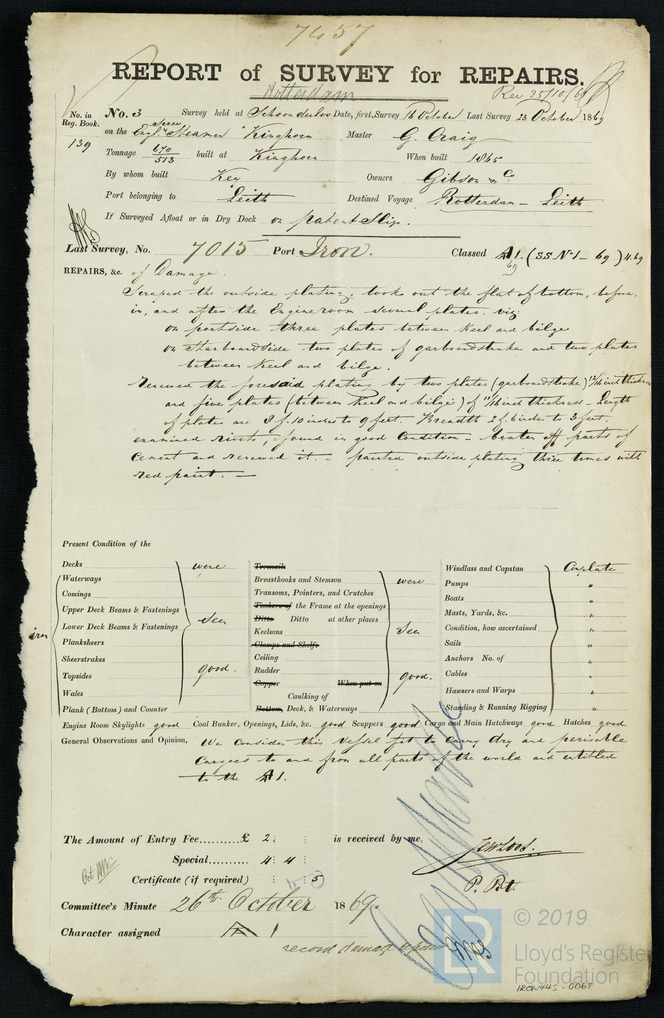 7457
REPORT of SURVEY for REPAIRS.
Rotterdam
Rec 25/10/69
No. in Reg. Book.
139
No. 3 Survey held at Schoonderloo Date, first Survey 16 October Last Survey 23 October 1869
on the Screw Steamer "Kinghorn Master G. Craig
Tonnage 670/513 built at Kinghorn When built 1865
By whom built Key Owners Gibson & Co
Port belonging to Leith Destined Voyage Rotterdam – Leith
If Surveyed Afloat or in Dry Dock on patent Slip.
Last Survey, No. 7015 Port Iron. Classed A1. (SS No 1 – 69) 4.69
69
REPAIRS, &c. of Damage.
Scraped the outside plating, took out the flat of bottom, before,
in, and after the Engineroom several plates. viz
on portside three plates between keel and bilge
on Starboardside two plates of garboardstrake and two plates
between keel and bilge.
Renewed the foresaid plating by two plates (garboardstrake) 12/16 inst thickness
and five plates (between keel and bilge) of 11/16 inst thickness – Length
of plates are 8 f. 10 inches to 9 feet. Breadth 2 f. 6 inches to 3 feet
examined rivets, found in good condition – beaten off parts of
cement and renewed it – painted outside plating three times with
red paint. –
Present Condition of the
Decks were
Waterways
Comings
Upper Deck Beams & Fastenings
Lower Deck Beams & Fastenings Seen
iron
Planksheers
Sheerstrakes
Topsides good.
Wales
Plank (Bottom) and Counter
Treenails
Breasthooks and Stemson were
Transoms, Pointers, and Crutches
Timbers of the Frame at the openings
Ditto Ditto at other places
Keelsons Seen
Clamps and Shelfs
Ceiling
Rudder
Copper When put on good.
Caulking of
Bottom, Deck, & Waterways
Windlass and Capstan Complete
Pumps "
Boats "
Masts, Yards, &c. "
Condition, how ascertained "
Sails "
Anchors No. of "
Cables "
Hawsers and Warps "
Standing & Running Rigging "
Engine Room Skylights good Coal Bunker, Openings, Lids, &c. good Scuppers good Cargo and Main Hatchways good Hatches good
General Observations and Opinion, We consider this Vessel fit to carry dry and perisable
Cargoes to and from all parts of the world and entitled
to the A1.
The Amount of Entry Fee £ 2: : is received by me,
Special 4: 4:
Certificate (if required) : : 5
Committee's Minute 26th October 1869.
Character assigned A 1
record damage repairs
© 2019
LR
Lloyd's Register
Foundation
IRON445-0068